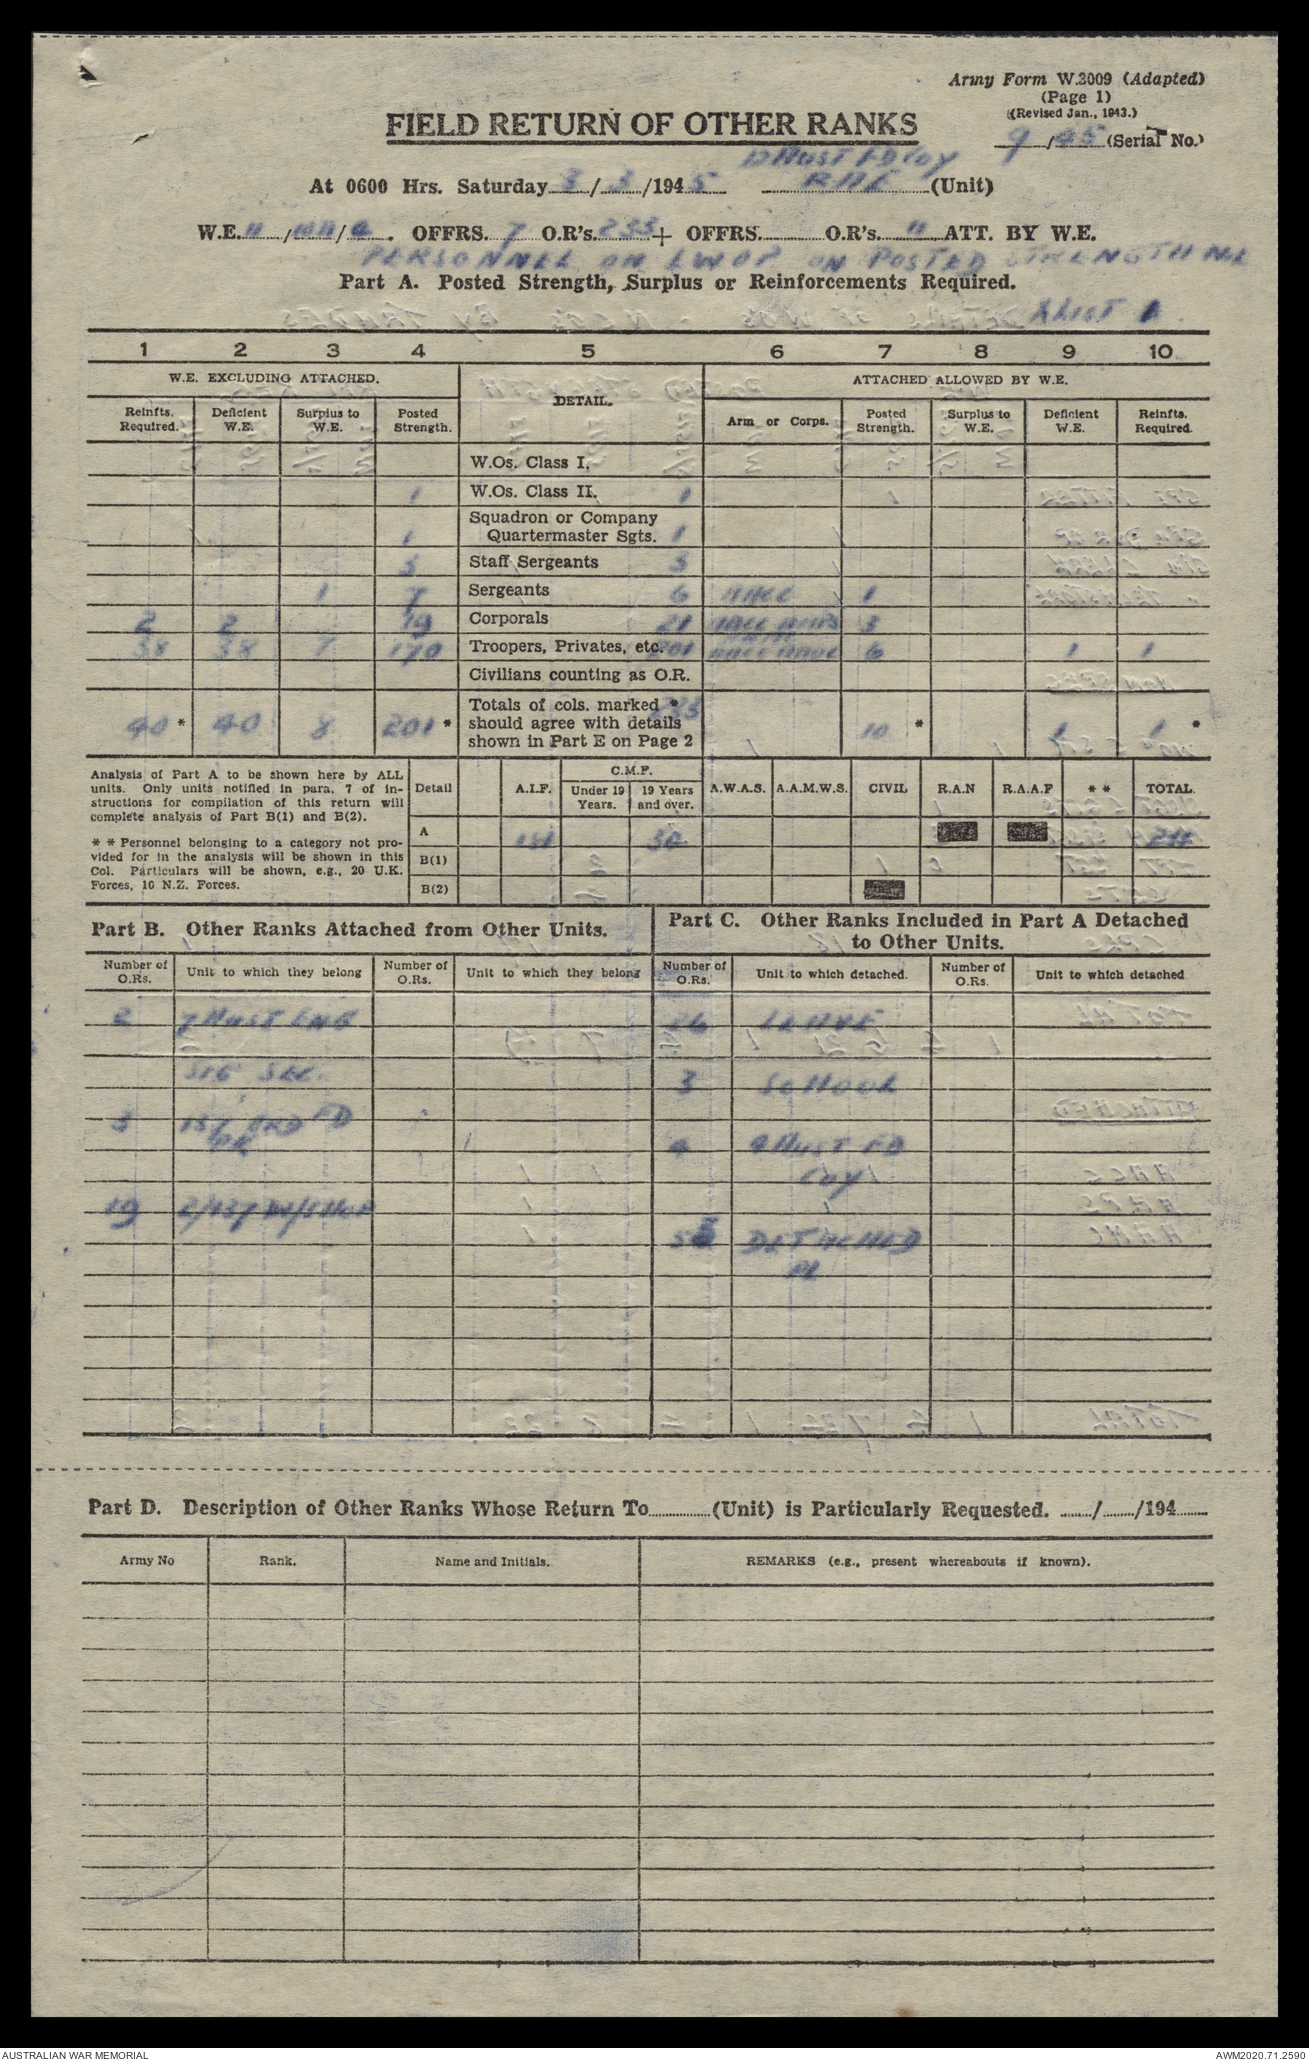 Army Form W.3009 (Adapted)
(Page 1)
(Revised Jan., 1943.)
FIELD RETURN OF OTHER RANKS
9/45 (Serial No.)
At 0600 Hrs. Saturday 3/3/1945 RAE (Unit)
W.E. 11/ / . OFFRS. 7 O.R's. 233 + OFFRS. O.R's. 11 ATT. BY W.E.
PERSONNEL ON LWOP ON POSTED STRENGTH NIL
Part A. Posted Strength, Surplus or Reinforcements Required.
1 2 3 4 5 6 7 8 9 10
W.E. EXCLUDING ATTACHED. DETAIL. ATTACHED ALLOWED BY W.E.
Reinfts. Required. Deficient W.E. Surplus to W.E. Posted Strength. Arm or Corps. Posted Strength. Surplus to W.E. Deficient W.E. Reinfts. Required.
W.Os. Class I.
1 W.Os. Class II. 1
Squadron or Company
1 Quartermaster Sgts. 1
3 Staff Sergeants 3
1 7 Sergeants 6 AACC 1
2 2 19 Corporals 21 3
38 38 7 170 Troopers, Privates, etc. 201 6 1 1
Civilians counting as O.R.
Totals of cols. marked *
40 * 40 8 201 * should agree with details 233 10 * 1 1 *
shown in Part E on Page 2
Analysis of Part A to be shown here by ALL
units. Only units notified in para. 7 of in-
structions for compilation of this return will
complete analysis of Part B(1) and B(2).
* * Personnel belonging to a category not pro-
vided for in the analysis will be shown in this
Col. Particulars will be shown, e.g., 20 U.K.
Forces, 16 N.Z. Forces.
Detail A.I.F. C.M.F. Under 19 Years. 19 Years and over. A.W.A.S. A.A.M.W.S. CIVIL R.A.N R.A.A.F * * TOTAL
A 181 30 211
B(1)
B(2)
Part B. Other Ranks Attached from Other Units.
Part C. Other Ranks Included in Part A Detached
to Other Units.
Number of O.Rs. Unit to which they belong Number of O.Rs. Unit to which they belong Number of O.Rs. Unit to which detached. Number of O.Rs. Unit to which detached
2 7 AUST LAB 26 LEAVE
SEC. 3 SCHOOL
3 FD 4 4 AUST FD
COY
19 2/137 BN/SHOP 5 DETACHED
PL
Part D. Description of Other Ranks Whose Return To (Unit) is Particularly Requested. / /194
Army No Rank. Name and Initials. REMARKS (e.g., present whereabouts if known).
AUSTRALIAN WAR MEMORIAL
AWM2020.71.2590